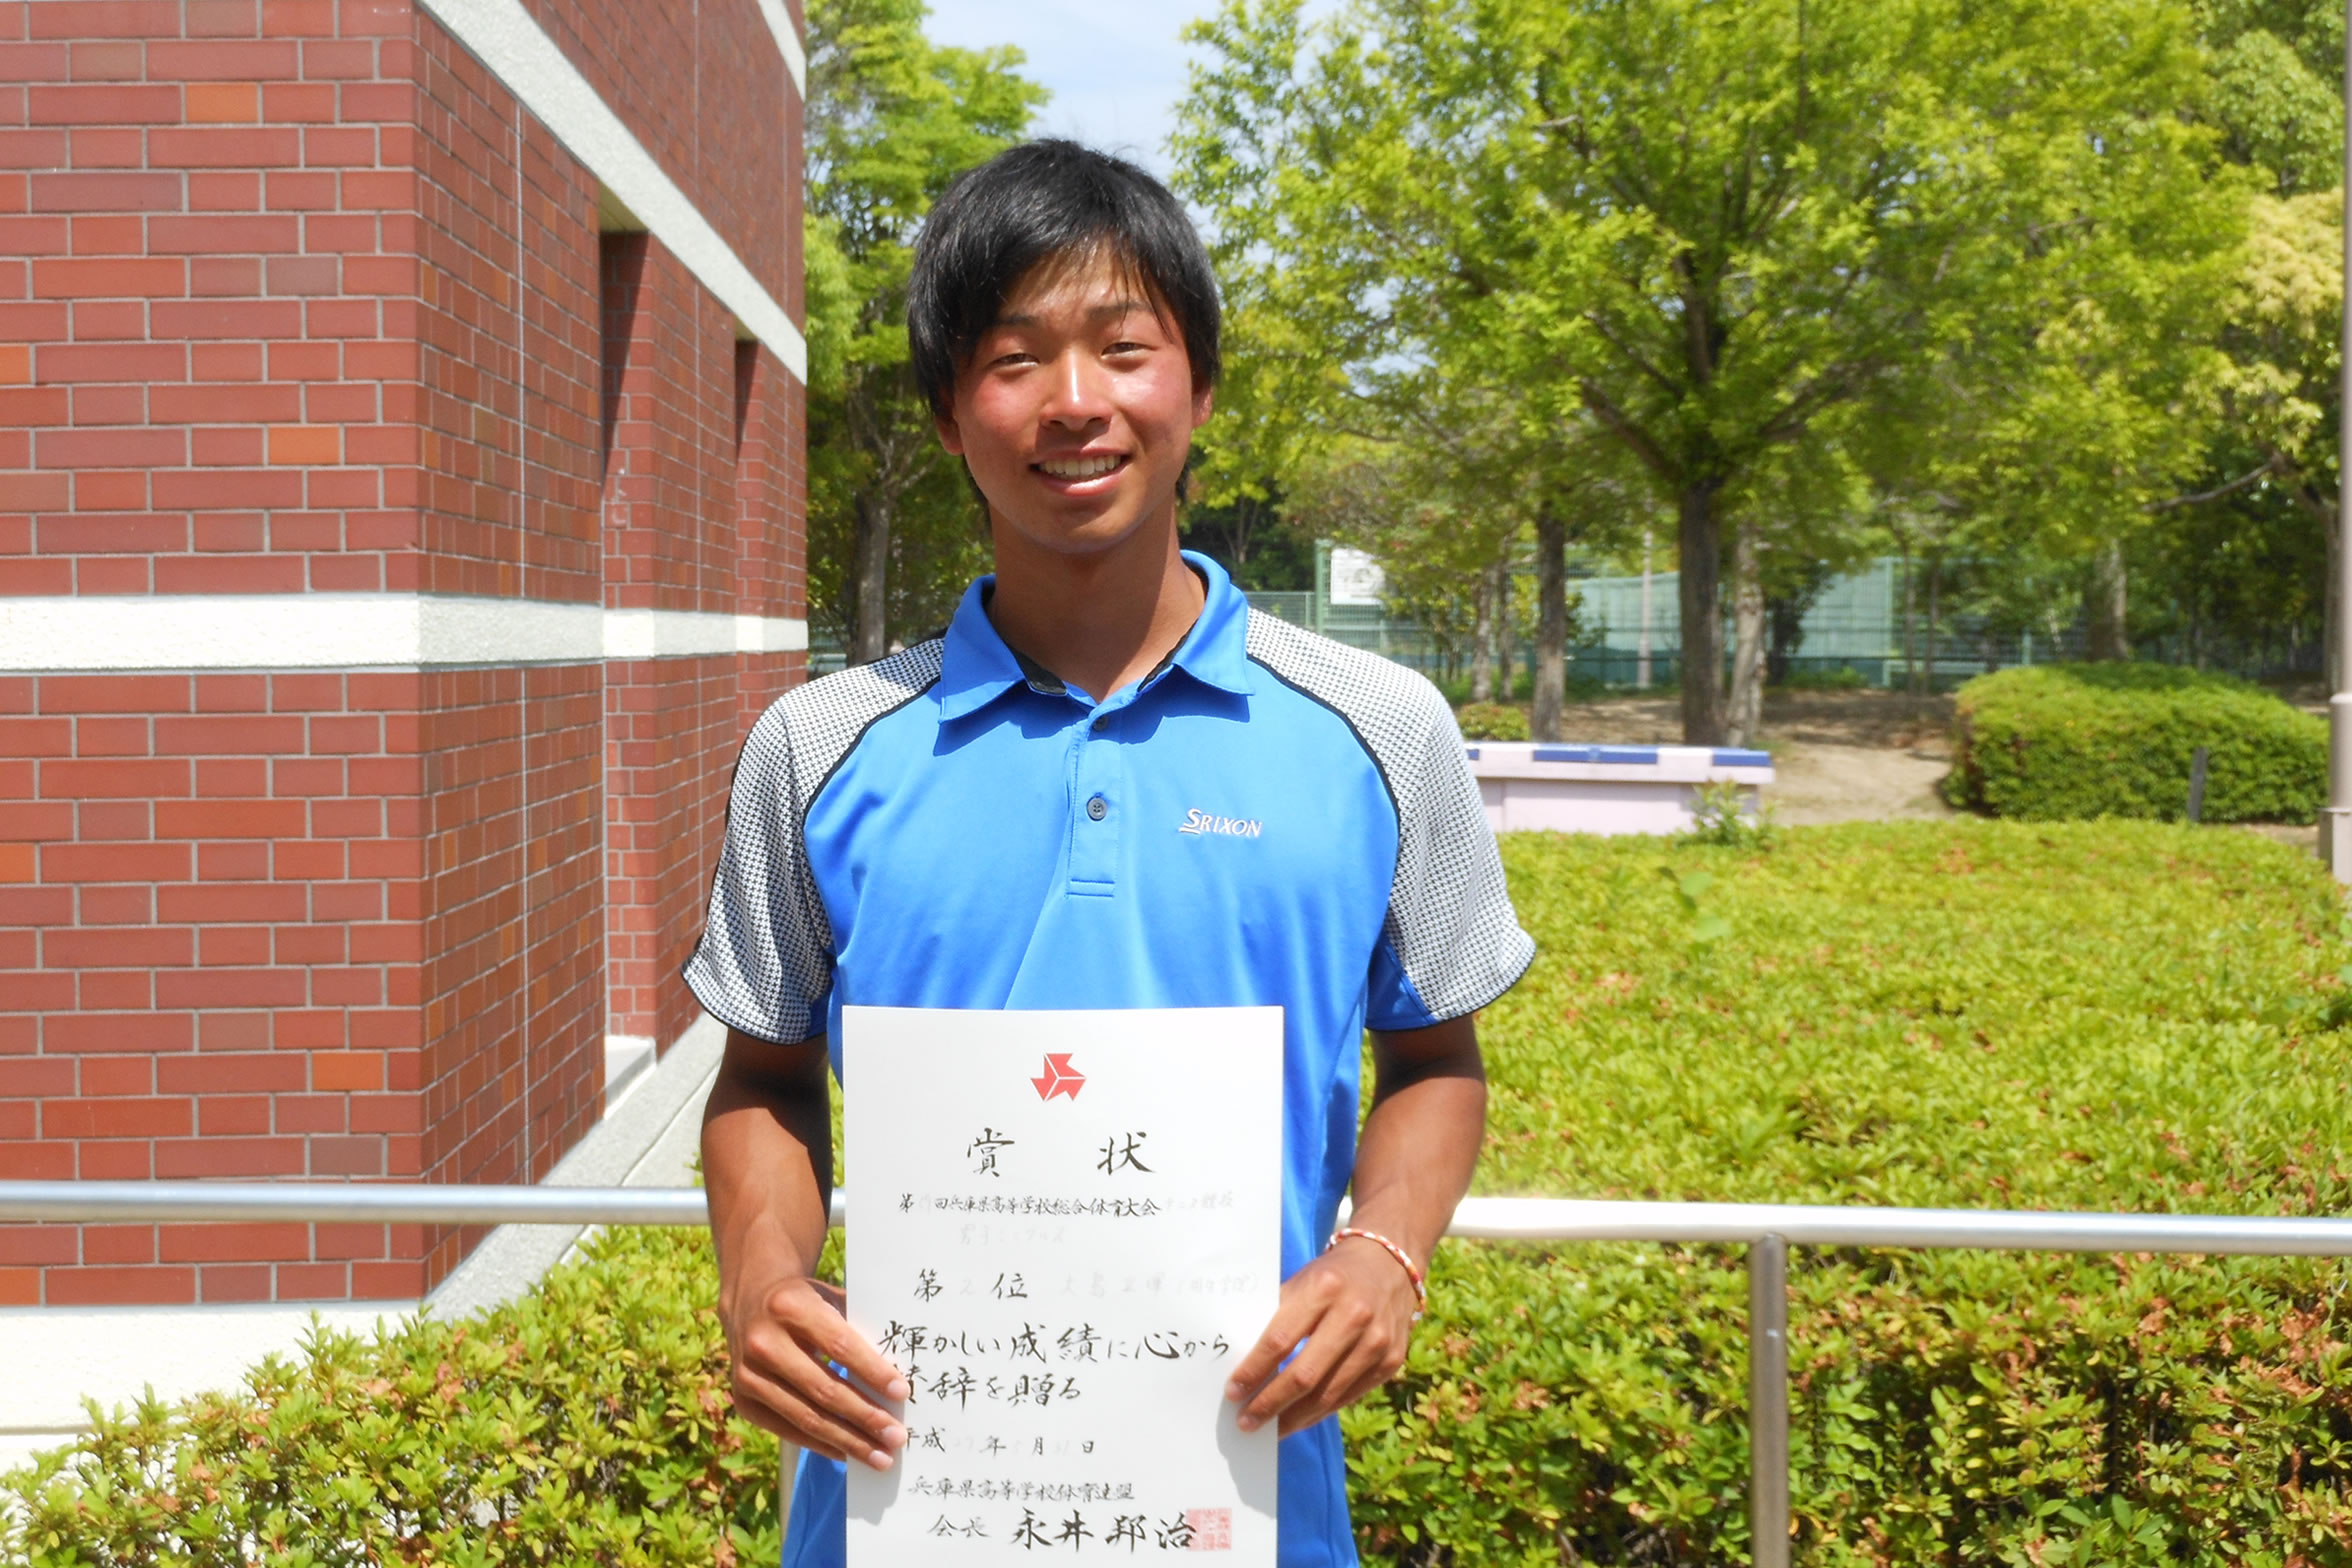 SRIXON
賞 状
第 回兵庫県高等学校総合体育大会テニス競技
男子シングルス
第2位 大島立暉
輝かしい成績に心から
賛辞を贈る
平成27年5月31日
兵庫県高等学校体育連盟
会長 永井邦治